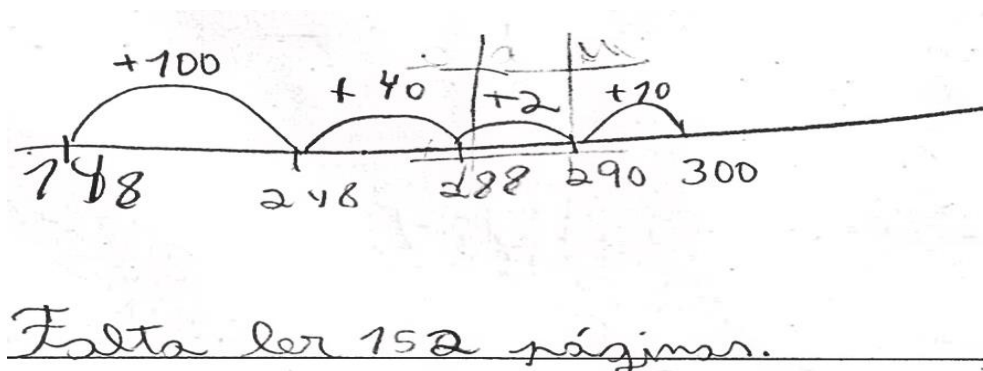 +100 +40 +2 +10
148 248 288 290 300
Falta ler 152 páginas.